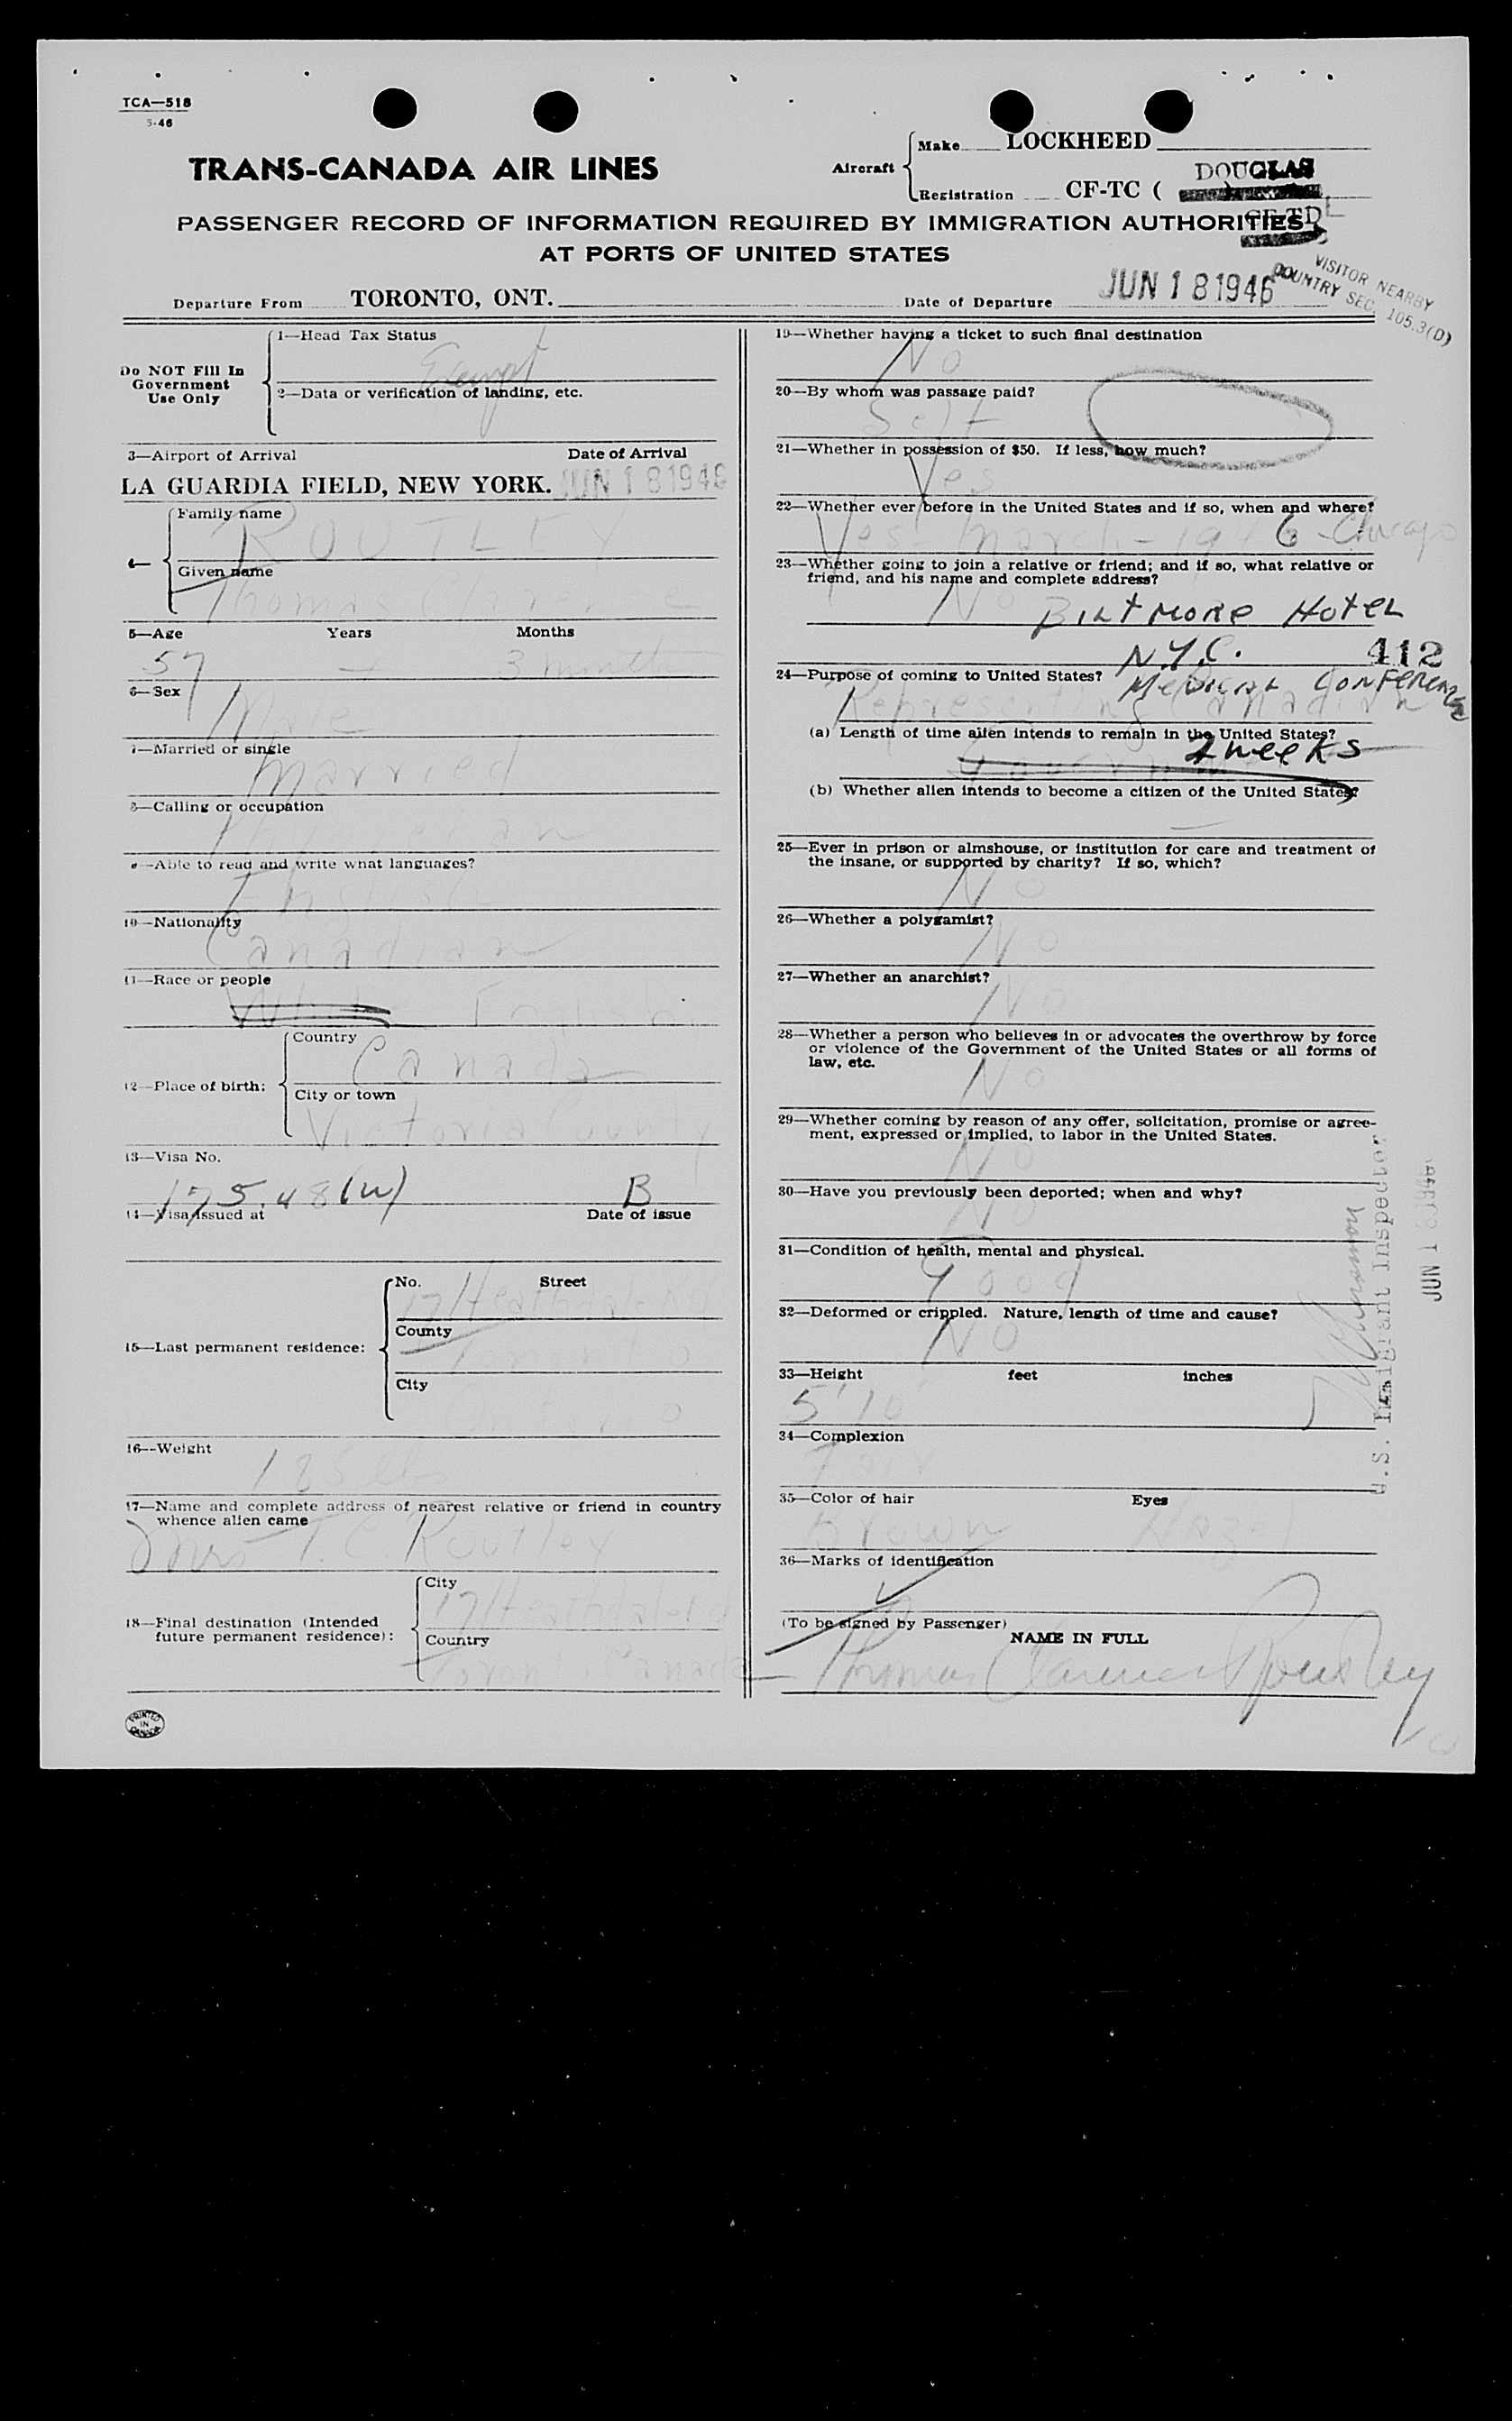 TCA—518
5-46
TRANS-CANADA AIR LINES
Aircraft
Make LOCKHEED
DOUGLAS
Registration CF-TC (
CF-TD
PASSENGER RECORD OF INFORMATION REQUIRED BY IMMIGRATION AUTHORITIES
AT PORTS OF UNITED STATES
VISITOR NEARBY
COUNTRY SEC. 105.3(D)
Departure From TORONTO, ONT. Date of Departure JUN 18 1946
Do NOT Fill In
Government
Use Only
1—Head Tax Status
Exempt
2—Data or verification of landing, etc.
3—Airport of Arrival Date of Arrival
LA GUARDIA FIELD, NEW YORK. JUN 18 1946
4—
Family name
ROUTLEY
Given name
Thomas Clarence
5—Age Years Months
57 — 3 months
6—Sex
Male
7—Married or single
Married
8—Calling or occupation
Physician
9—Able to read and write what languages?
English
10—Nationality
Canadian
11—Race or people
White English
12—Place of birth:
Country
Canada
City or town
Victoria County
13—Visa No.
175.48(w) B
14—Visa issued at Date of issue
15—Last permanent residence:
No. Street
17 Heathdale Rd
County
Toronto
City
Ontario
16—Weight
185 lbs
17—Name and complete address of nearest relative or friend in country
whence alien came
Mrs T. C. Routley
18—Final destination (Intended
future permanent residence):
City
17 Heathdale Rd
Country
Toronto Canada
PRINTED
IN
CANADA
19—Whether having a ticket to such final destination
No
20—By whom was passage paid?
Self
21—Whether in possession of $50. If less, how much?
Yes
22—Whether ever before in the United States and if so, when and where?
Yes - March - 1946 - Chicago
23—Whether going to join a relative or friend; and if so, what relative or
friend, and his name and complete address?
No
BILTMORE HOTEL
N.Y.C. 412
24—Purpose of coming to United States? MEDICAL CONFERENCE
Representing Canadian
(a) Length of time alien intends to remain in the United States?
2 weeks
(b) Whether alien intends to become a citizen of the United States?
—
25—Ever in prison or almshouse, or institution for care and treatment of
the insane, or supported by charity? If so, which?
No
26—Whether a polygamist?
No
27—Whether an anarchist?
No
28—Whether a person who believes in or advocates the overthrow by force
or violence of the Government of the United States or all forms of
law, etc.
No
29—Whether coming by reason of any offer, solicitation, promise or agree-
ment, expressed or implied, to labor in the United States.
No
30—Have you previously been deported; when and why?
No
31—Condition of health, mental and physical.
Good
32—Deformed or crippled. Nature, length of time and cause?
NO
33—Height feet inches
5'10
34—Complexion
Fair
35—Color of hair Eyes
Brown Hazel
36—Marks of identification
(To be signed by Passenger)
NAME IN FULL
Thomas Clarence Routley
U.S. Immigrant Inspector
JUN 18 1946